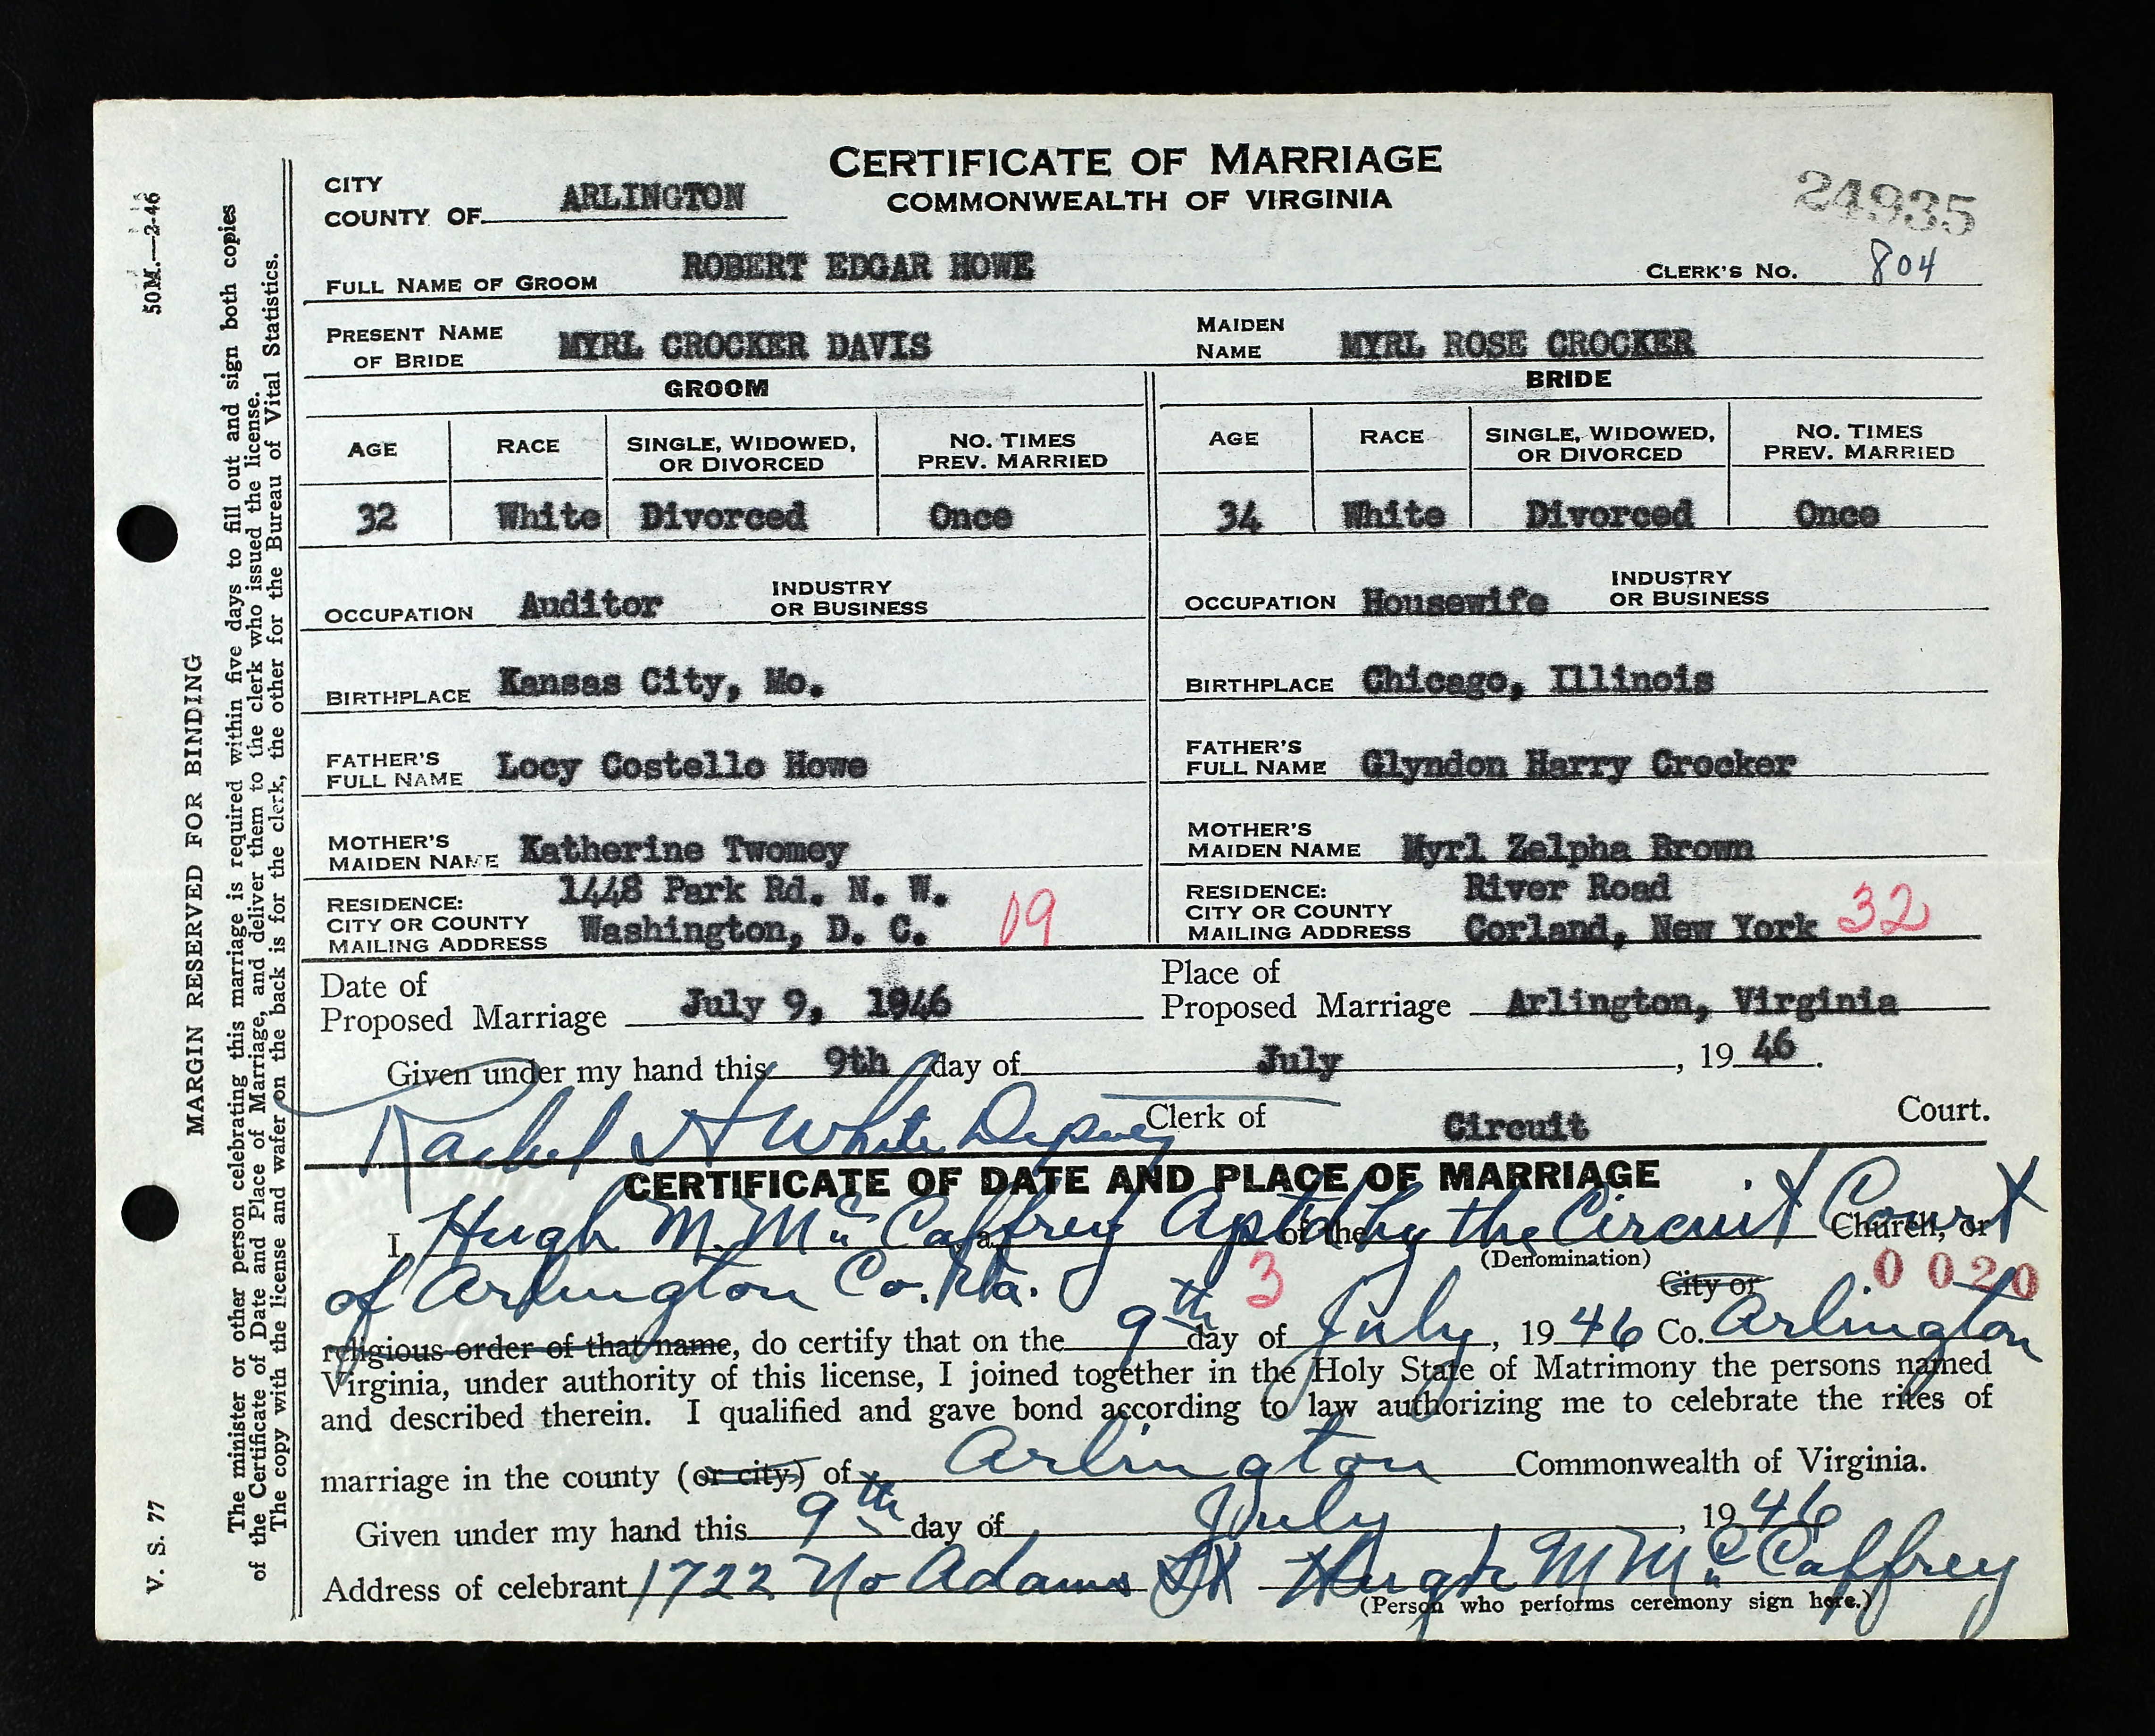 CERTIFICATE OF MARRIAGE
COMMONWEALTH OF VIRGINIA
CITY
COUNTY OF ARLINGTON
24935
FULL NAME OF GROOM ROBERT EDGAR HOWE CLERK'S NO. 804
PRESENT NAME OF BRIDE MYRL CROCKER DAVIS MAIDEN NAME MYRL ROSE CROCKER
GROOM BRIDE
AGE RACE SINGLE, WIDOWED, OR DIVORCED NO. TIMES PREV. MARRIED AGE RACE SINGLE, WIDOWED, OR DIVORCED NO. TIMES PREV. MARRIED
32 White Divorced Once 34 White Divorced Once
OCCUPATION Auditor INDUSTRY OR BUSINESS OCCUPATION Housewife INDUSTRY OR BUSINESS
BIRTHPLACE Kansas City, Mo. BIRTHPLACE Chicago, Illinois
FATHER'S FULL NAME Locy Costello Howe FATHER'S FULL NAME Glyndon Harry Crocker
MOTHER'S MAIDEN NAME Katherine Twomey MOTHER'S MAIDEN NAME Myrl Zelpha Brown
RESIDENCE: CITY OR COUNTY MAILING ADDRESS 1448 Park Rd. N. W. Washington, D. C. 09 RESIDENCE: CITY OR COUNTY MAILING ADDRESS River Road Corland, New York 32
Date of Proposed Marriage July 9, 1946 Place of Proposed Marriage Arlington, Virginia
Given under my hand this 9th day of July, 19 46.
Rachel H White Deputy Clerk of Circuit Court.
CERTIFICATE OF DATE AND PLACE OF MARRIAGE
I, Hugh M. McCaffrey, a Aptd of the by the Circuit Court Church, or
(Denomination)
of Arlington Co. Va. 3 City or 0 020
religious order of that name, do certify that on the 9th day of July, 19 46 Co. Arlington
Virginia, under authority of this license, I joined together in the Holy State of Matrimony the persons named
and described therein. I qualified and gave bond according to law authorizing me to celebrate the rites of
marriage in the county (or city) of Arlington Commonwealth of Virginia.
Given under my hand this 9th day of July, 19 46
Address of celebrant 1722 No Adams St Hugh M McCaffrey
(Person who performs ceremony sign here.)
50M.—2-46
MARGIN RESERVED FOR BINDING
V. S. 77
The minister or other person celebrating this marriage is required within five days to fill out and sign both copies
of the Certificate of Date and Place of Marriage, and deliver them to the clerk who issued the license.
The copy with the license and wafer on the back is for the clerk, the other for the Bureau of Vital Statistics.